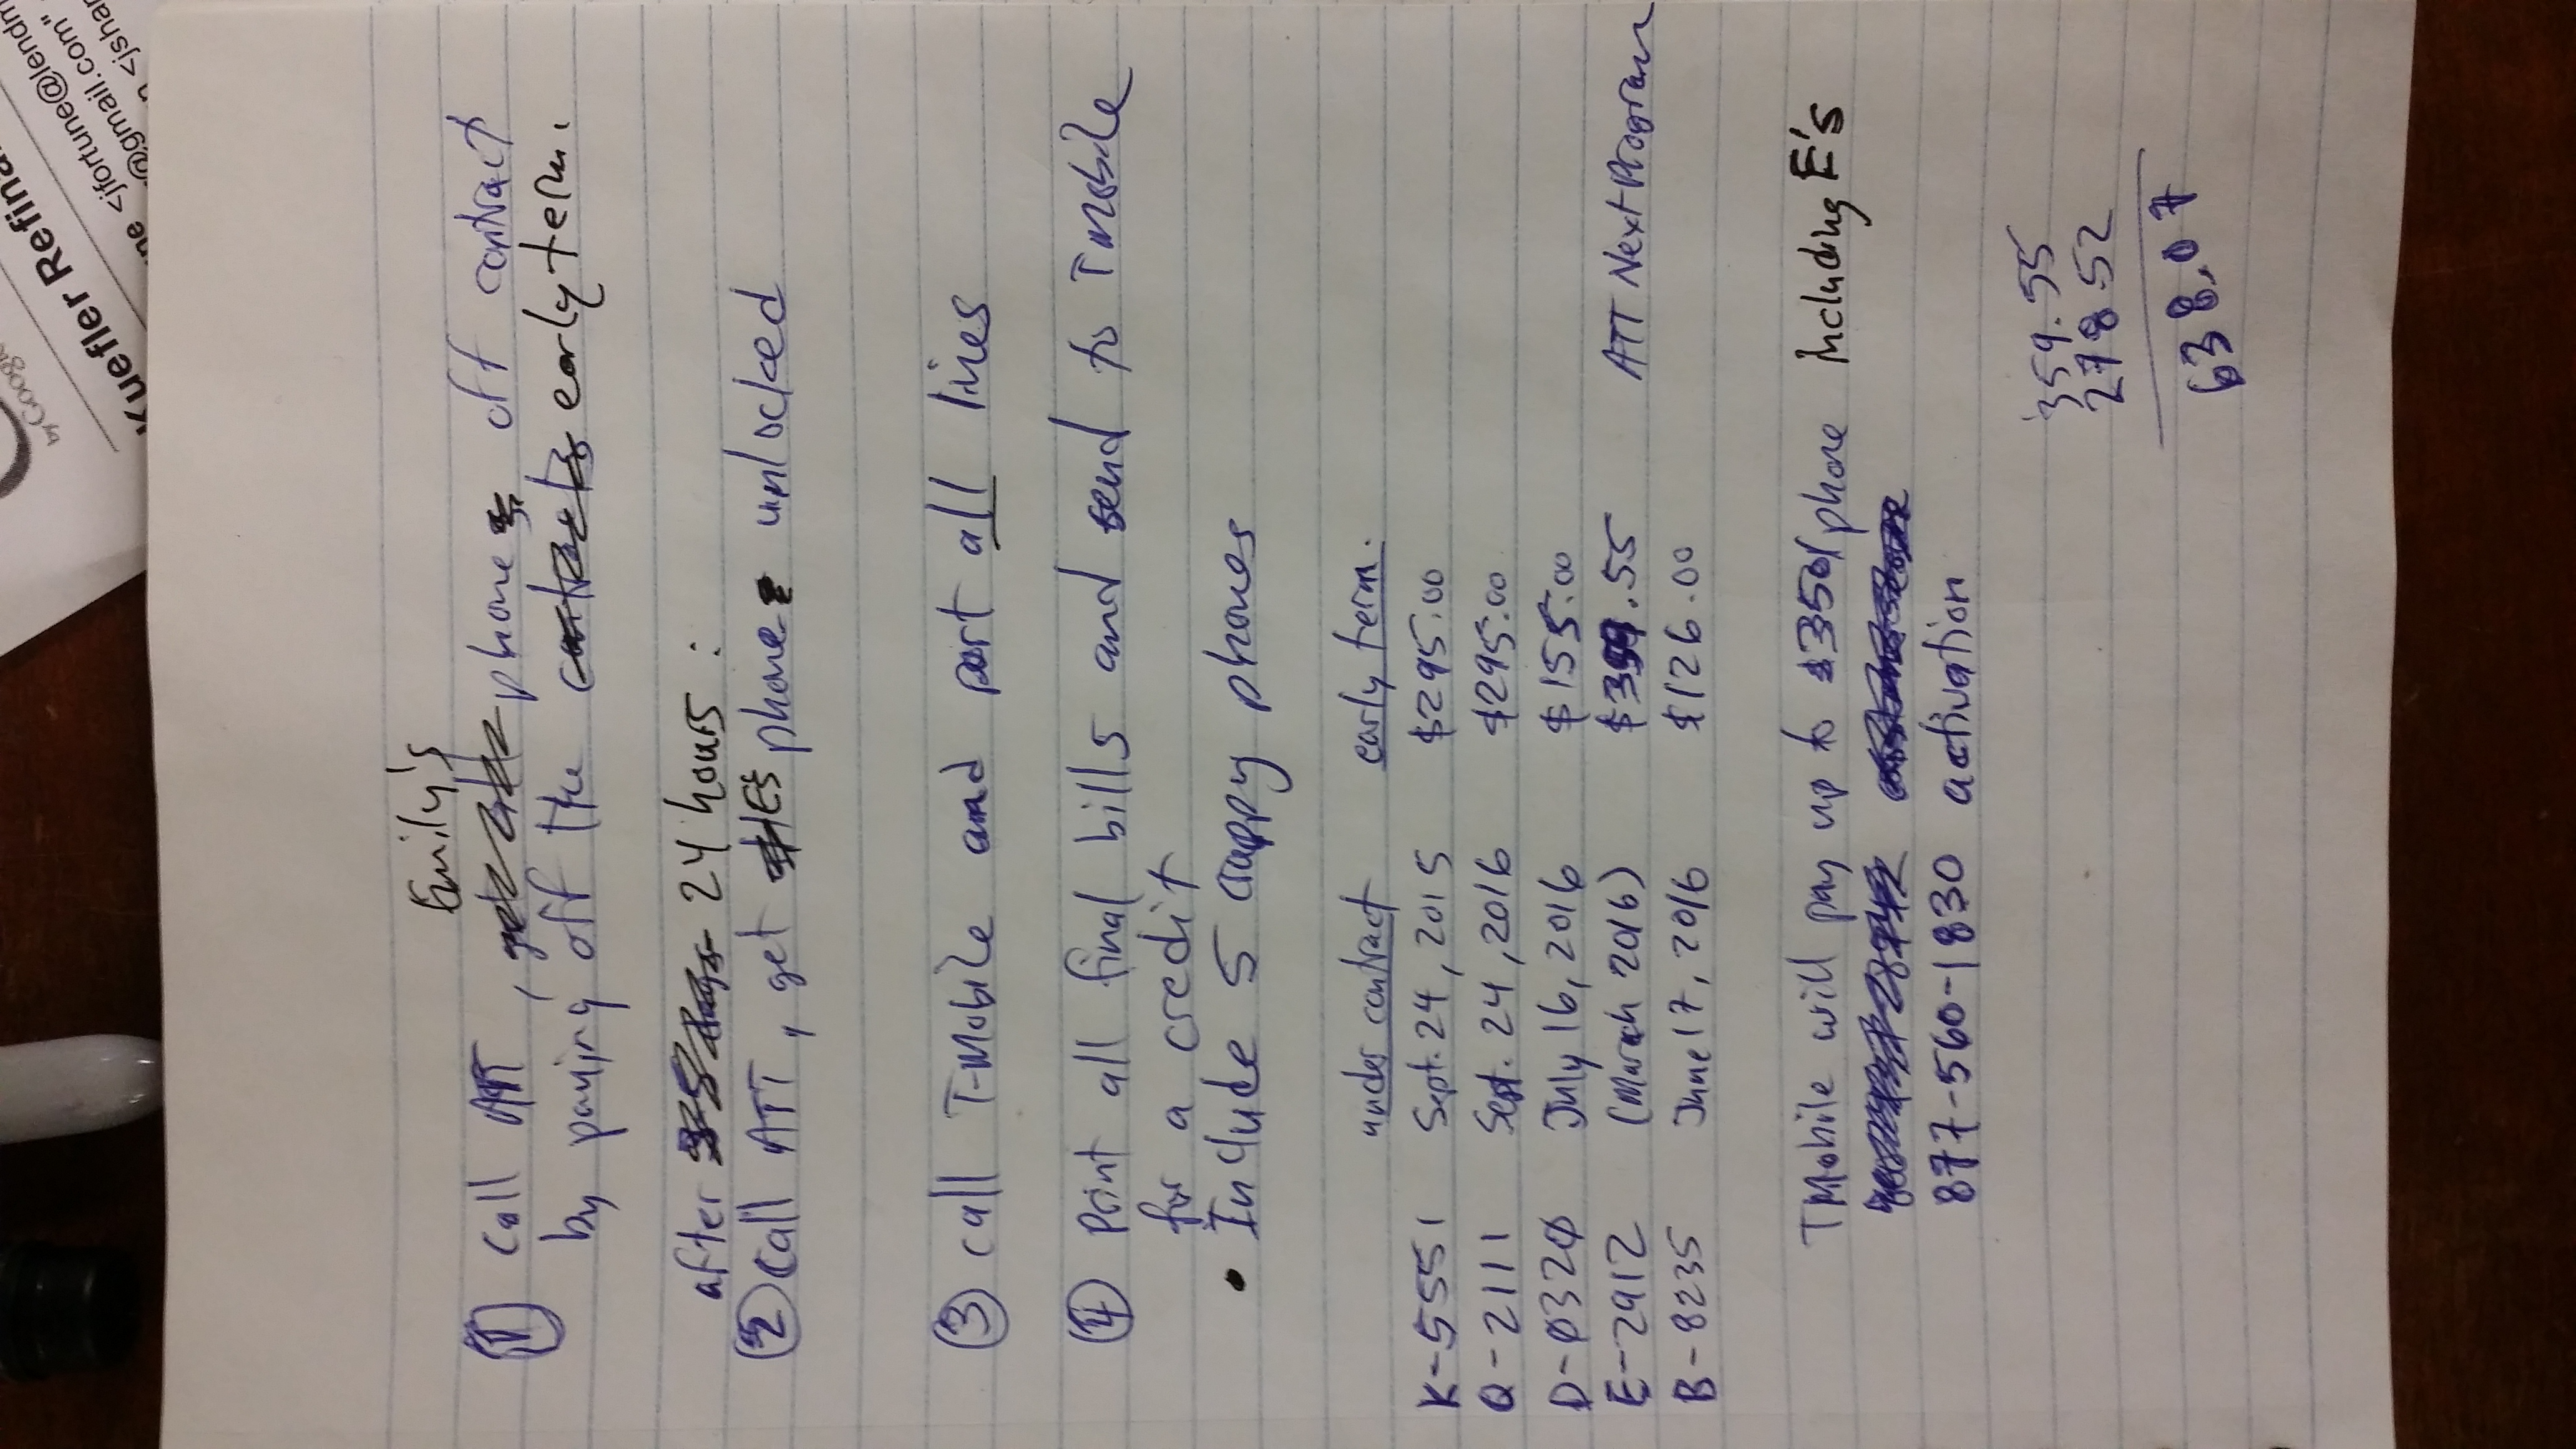 by Google
Kuefler Refina
ne <jfortune@lendm
@gmail.com"
<jshar
Emily's
① Call ATT, phone off contract
by paying off the early term.
after 24 hours:
② Call ATT, get E's phone unlocked
③ Call T-Mobile and port all lines
④ Print all final bills and send to TMobile
for a credit
• Include 5 crappy phones
under contract early term.
K-5551 Sept. 24, 2015 $295.00
Q-2111 Sept. 24, 2016 $295.00
D-0320 July 16, 2016 $155.00
E-2912 (March 2016) $359.55 ATT Next Program
B-8235 June 17, 2016 $126.00
TMobile will pay up to $350/phone Including E's
877-560-1830 activation
359.55
278.52
638.07